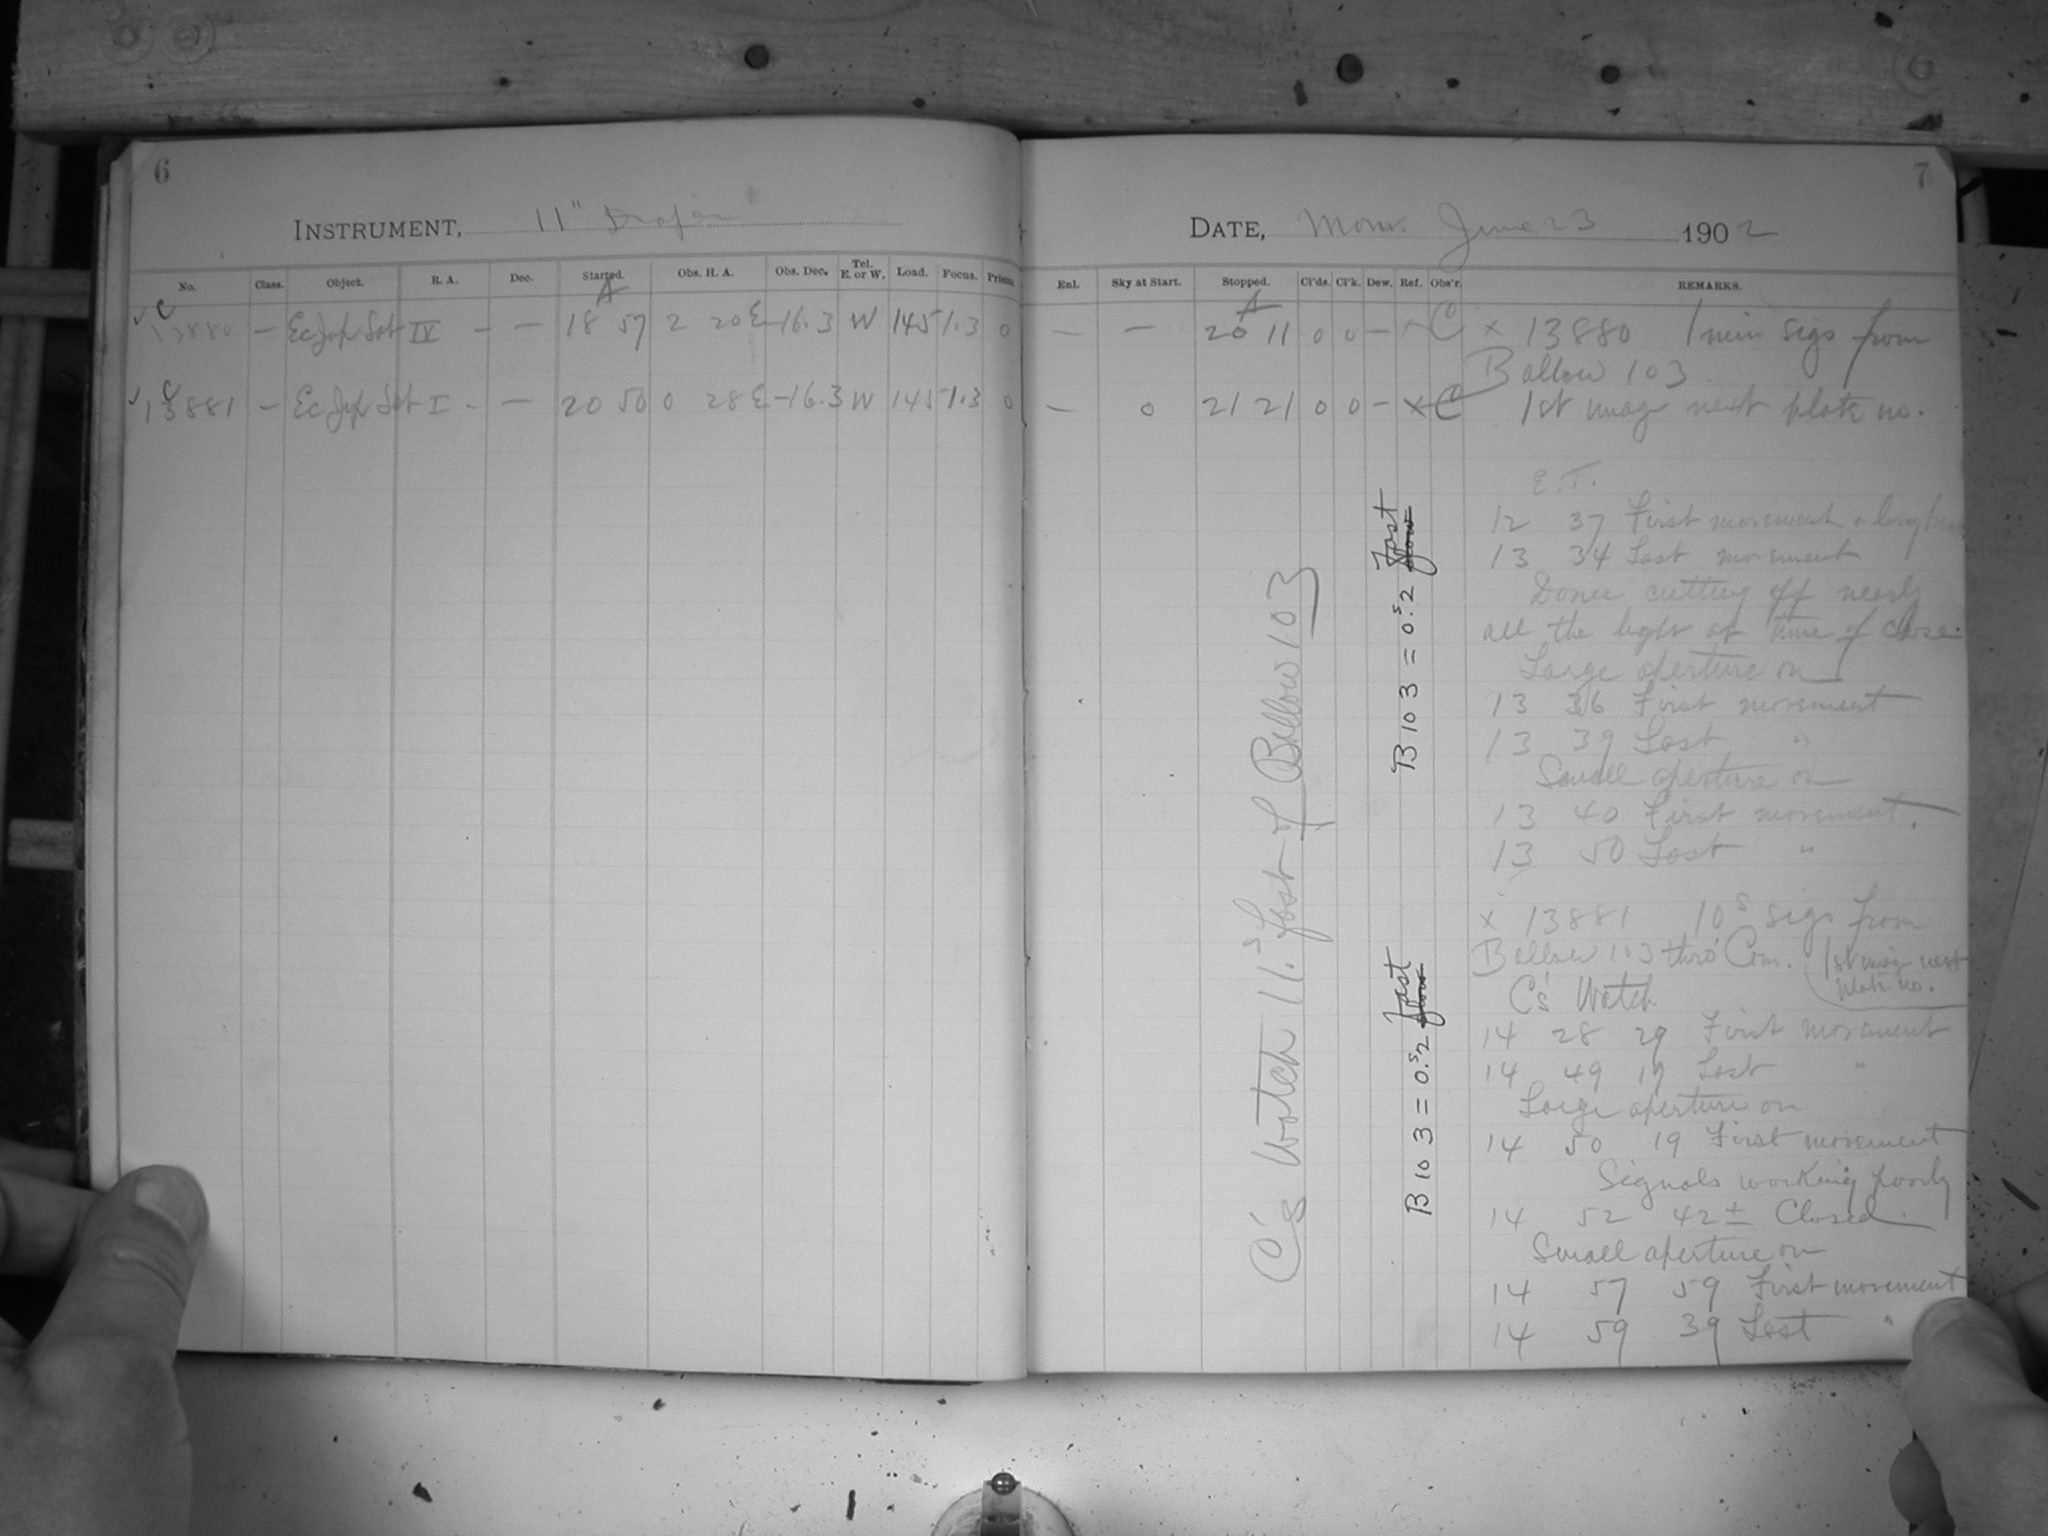 6
INSTRUMENT, 11" Draper
No. Class. Object. R. A. Dec. Started. Obs. H. A. Obs. Dec. Tel. E. or W. Load. Focus. Prisms.
A
C
13880 — Ec Jup Sat IV - — 18 57 2 20 E -16.3 W 145 1.3 0
C
13881 — Ec Jup Sat I - — 20 50 0 28 E -16.3 W 145 1.3 0
7
DATE, Mon. June 23 1902
Enl. Sky at Start. Stopped. Cl'ds. Cl'k. Dew. Ref. Obs'r. REMARKS.
A
— — 20 11 0 0 — × C × 13880 1 min sigs from
Ballow 103.
— 0 21 21 0 0 — × C 1st image next plate no.
E.T.
12 37 First movement
13 34 Last movement
Dome cutting off nearly
all the light at time of close.
Large aperture on
13 36 First movement
13 39 Last "
Small aperture on
13 40 First movement.
13 50 Last "
× 13881 10s sigs from
Ballow 103 thro' Com. (1st image next
plate no.
C's Watch
14 28 29 First movement
14 49 19 Last "
Large aperture on
14 50 19 First movement
Signals working poorly
14 52 42± Closed.
Small aperture on
14 57 59 First movement
14 59 39 Last "
C's Watch 11.s fast of Ballow 103
B 103 = 0.s2 slow fast
B 103 = 0.s2 slow fast